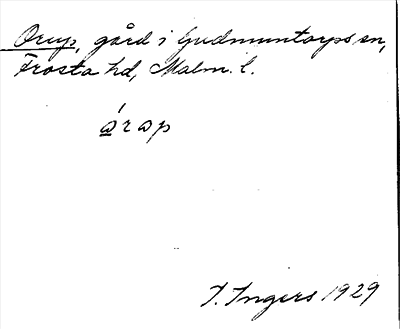 Orup, gård i Gudmuntorps sn,
Frosta hd, Malm. l.
ǿrɷp
I. Ingers 1929